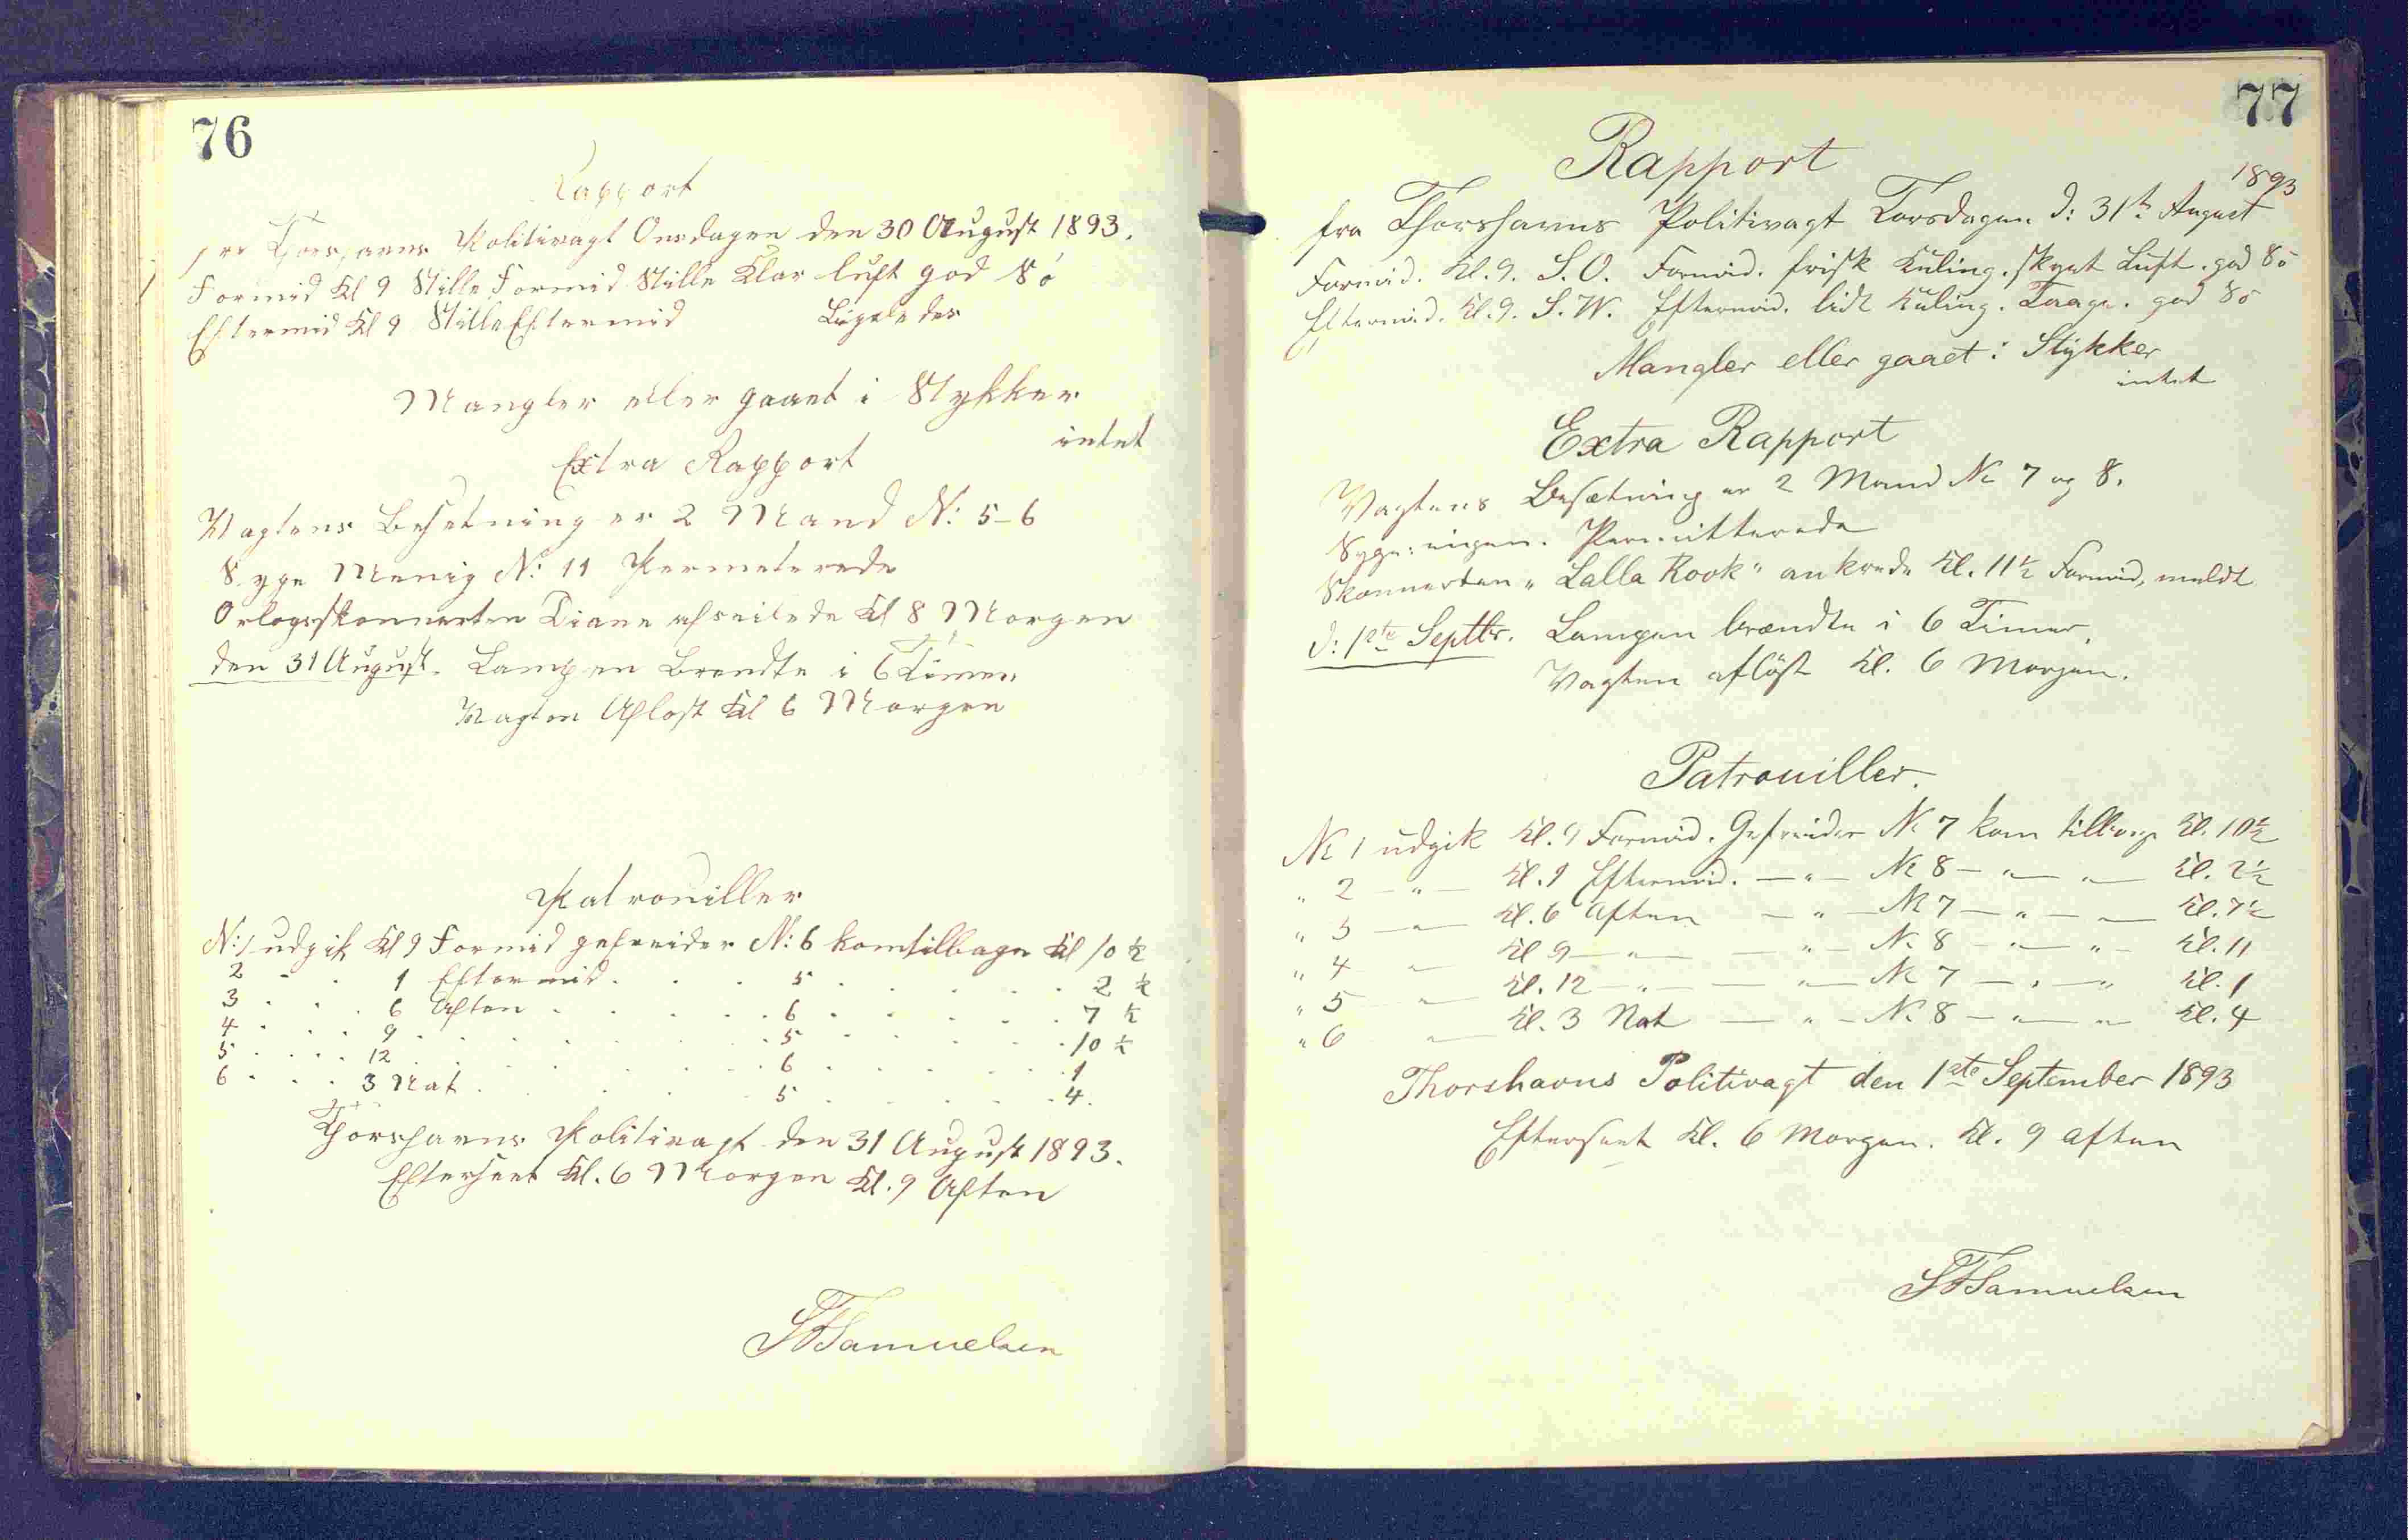 76
Rapport
fra Thorshavns Politivagt Onsdagen den 30 August 1893.
Formid Kl 9 Stille Formid Stille Klar luft god Sö
Eftermid Kl 9 Stille Eftermid Ligeledes
Mangler eller gaaet i Stykker
intet
Extra Rapport
Vagtens Besetning er 2 Mand N: 5-6
Syge Menig N: 11 Permeterede
Orlogsskonnerten Diana afseilede Kl 8 Morgen
den 31 August. Lampen Brendte i 6 Timer
Vagten Aflost Kl 6 Morgen
Patrouiller
N: 1 udgik Kl 9 Formid gefreider N: 6 kom tilbage Kl 10 ½
2 - . 1 Eftermid . . . 5 . . . . . 2 ½
3 . . . 6 Aften . . . . . 6 . . . . . 7 ½
4 . . . 9 . . . . . . 5 . . . . . 10 ½
5 . . . . 12 . . . . . . 6 . . . . . 1
6 . . . 3 Nat . . . . 5 . . . . . 4.
Thorshavns Politivagt den 31 August 1893.
Efterseet Kl. 6 Morgen Kl. 9 Aften
SFSamuelsen
77
Rapport
1893
fra Thorshavns Politivagt Torsdagen d: 31te August
Formid. Kl. 9. S.O. Formid. frisk Kuling. skyet Luft. god Sö
Eftermid. Kl. 9. S.W. Eftermid. lidt Kuling. Taage. god Sö
Mangler eller gaaet i Stykker
intet
Extra Rapport
Vagtens Besætning er 2 Mand No 7 og 8.
Syge: ingen. Permitterede
Skonnerten "Lalla Rook" ankrede Kl. 11½ Formid, meldt
d: 1ste Septbr. Lampen brændte i 6 Timer.
Vagten aflöst Kl. 6 Morgen.
Patrouiller.
No 1 udgik Kl. 9 Formid. Gefreider No 7 kom tilbage Kl. 10½
" 2 — " — Kl. 1 Eftermid. — " — No 8 — " — " — Kl. 2½
" 3 — " — Kl. 6 Aften — " — No 7 — " — " — Kl. 7½
" 4 " — Kl 9 — " — — " — No 8 — " — " — Kl. 11
" 5 " — Kl. 12 — " — — " — No 7 — " — " Kl. 1
" 6 " — Kl. 3 Nat — " — No 8 — " — " — Kl. 4
Thorshavns Politivagt den 1ste September 1893
Efterseet Kl. 6 Morgen. Kl. 9 Aften
SFSamuelsen